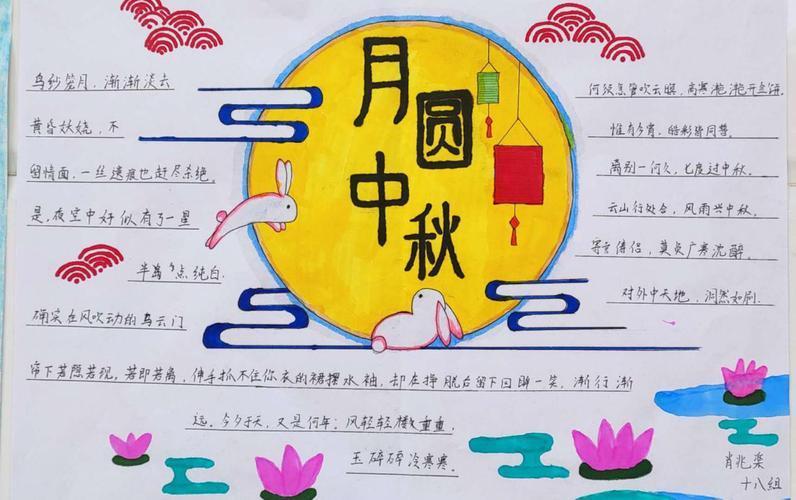 月圆中秋
乌纱笼月，渐渐淡去
黄昏妖娆，不
留情面，一丝遗痕也赶尽杀绝。
是，夜空中好似有了一星
半岛点纯白.
确实在风吹动的乌云门
帘下若隐若现，若即若离，伸手抓不住你衣的裙摆水袖，却在挣脱后留下回眸一笑，渐行渐
远。今夕于天，又是何年；风轻轻
重重，
玉碎碎冷寒寒。
何须急管吹云暝，高寒滟滟开金饼.
惟有今宵，皓彩皆同普。
离别一何久，七度过中秋。
云山行处合，风雨兴中秋。
寄言俦侣，莫负广寒沈醉。
对外中天地，洞然如刷.
肖兆
十八组